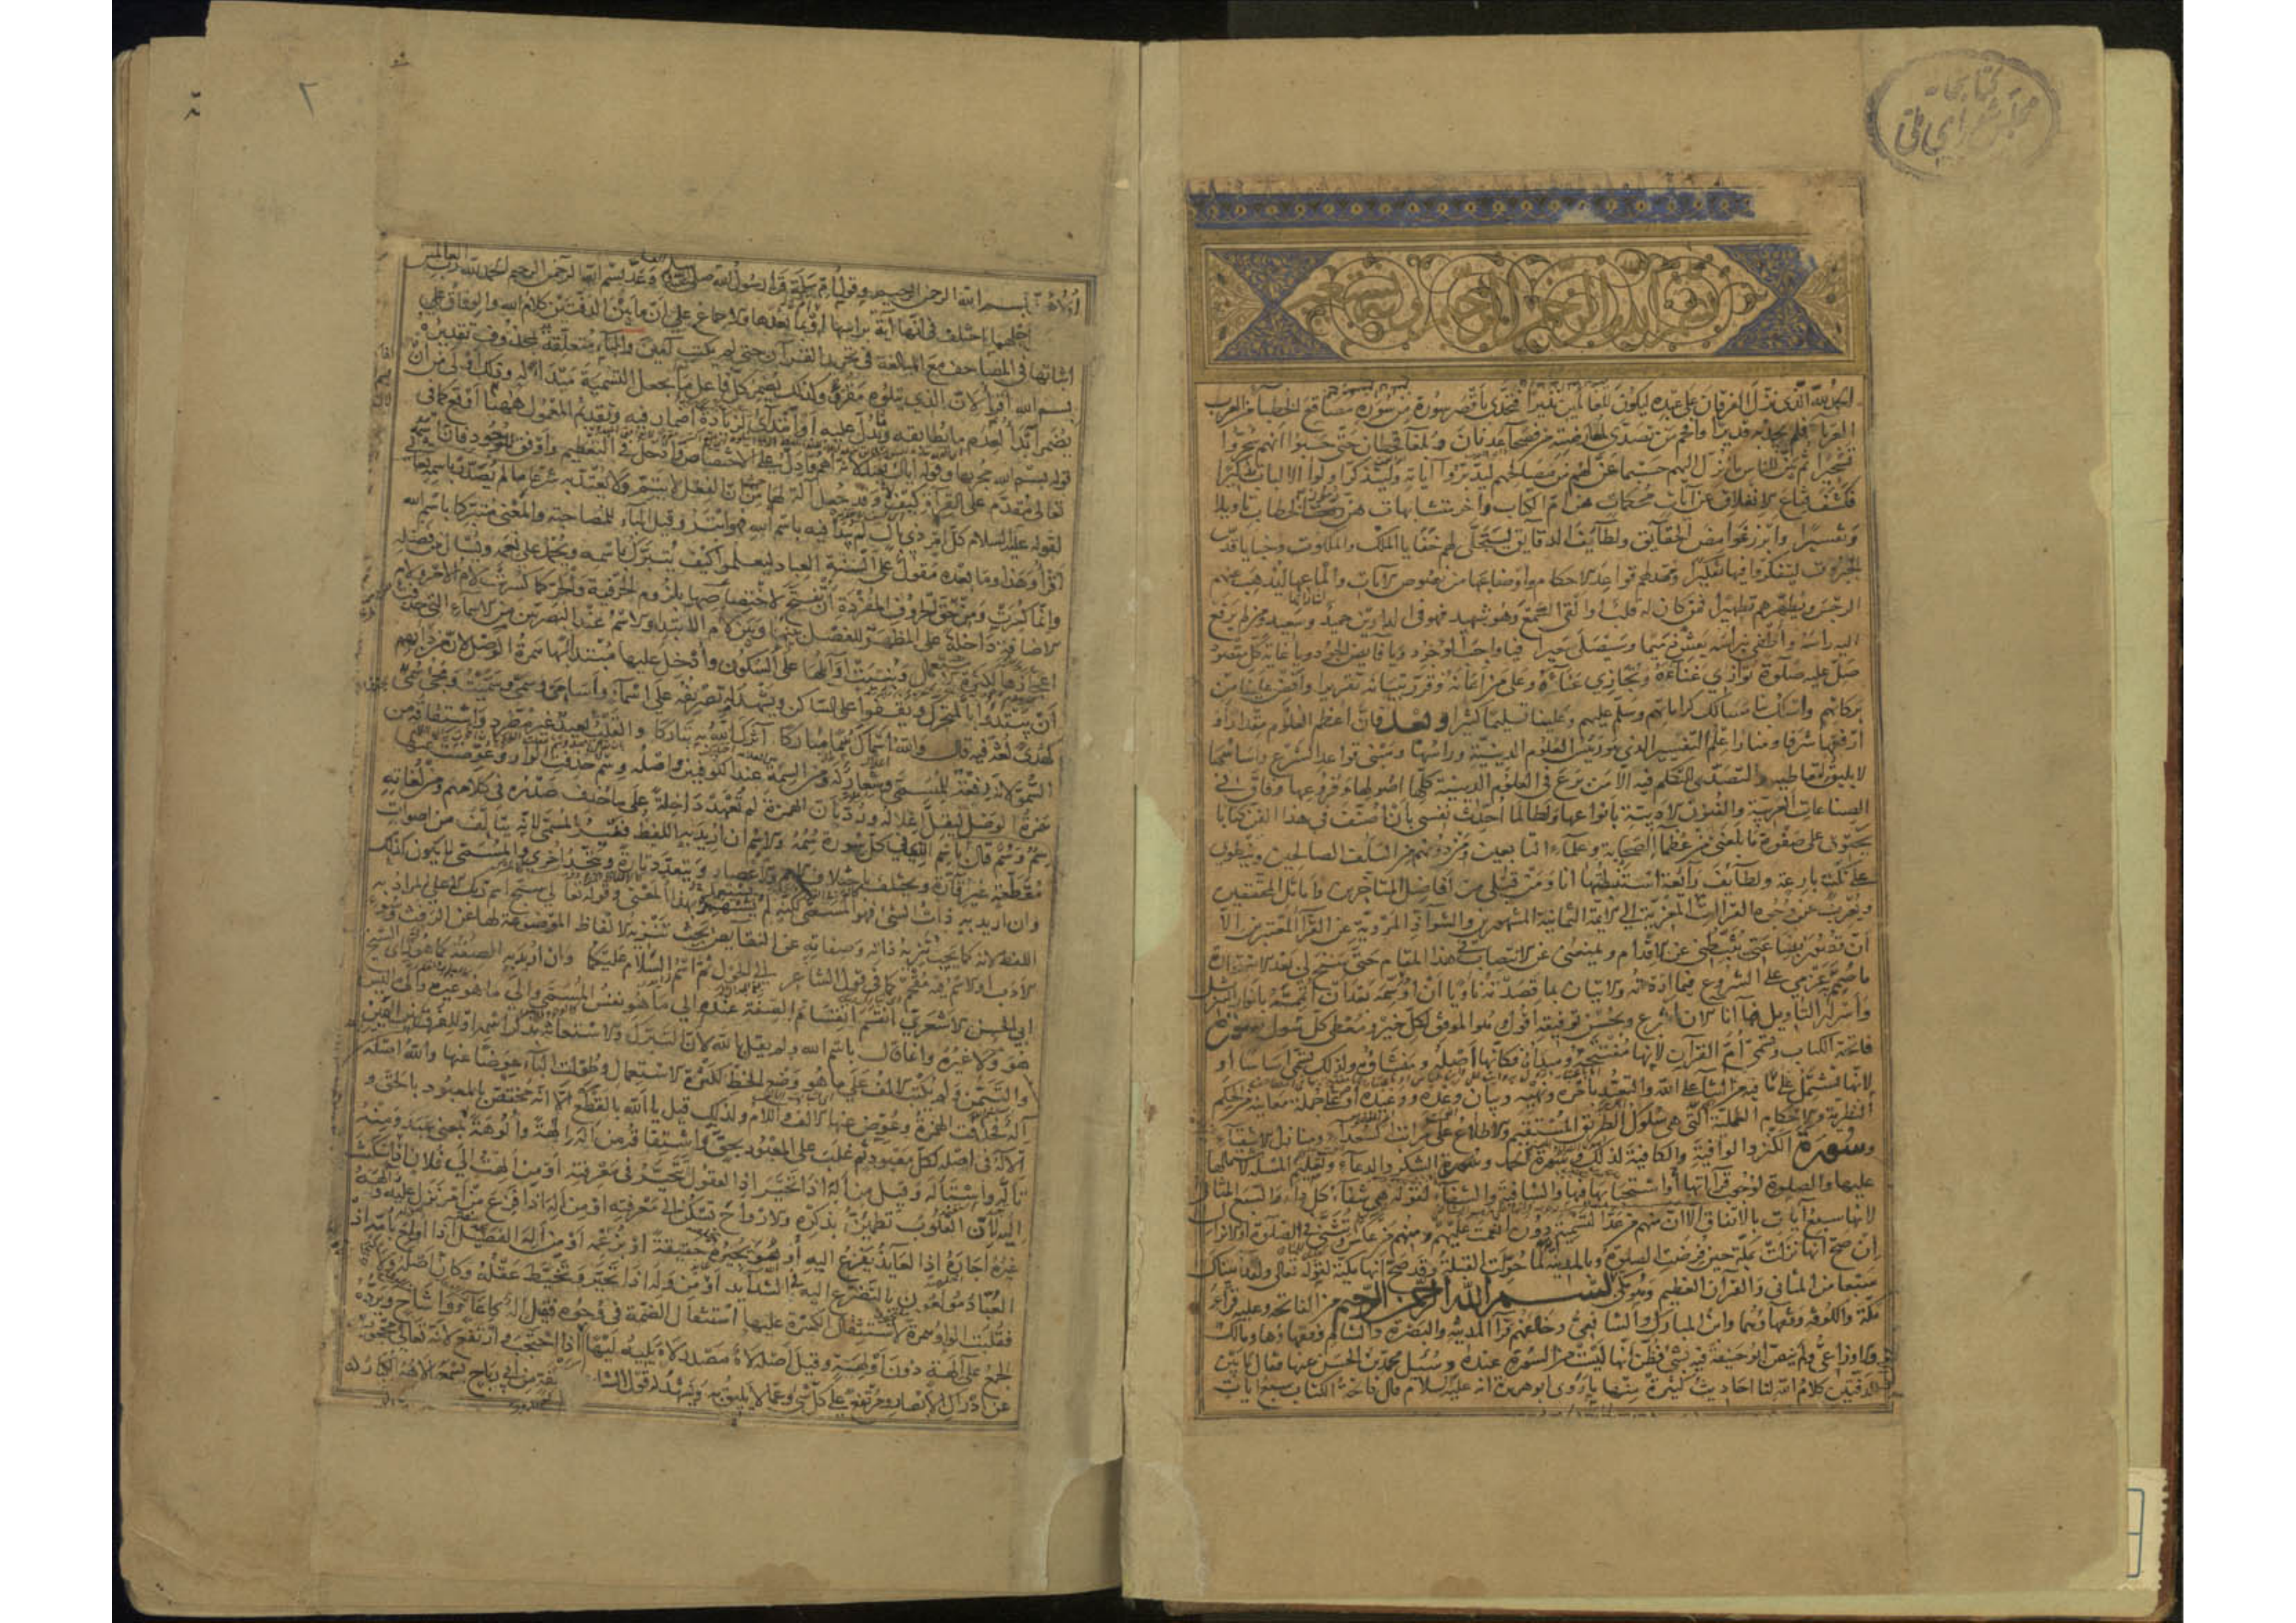 كتابخانه
مجلس شورای ملی
بسم الله الرحمن الرحيم
الحمد لله الذي نزل الفرقان على عبده ليكون للعالمين نذيرا فتحدى باقصر سورة من سوره مصاقع الخطباء من العرب
العرباء فلم يجد به قديرا وافحم من تصدى لمعارضته من فصحاء عدنان وبلغاء قحطان حتى حسبوا انهم سحروا
تسحيرا ثم بين للناس ما نزل اليهم حسبما عن لهم من مصالحهم ليدبروا آياته وليتذكر اولوا الالباب تذكيرا
فكشف قناع الانغلاق عن آيات محكمات هن ام الكتاب واخر متشابهات هن رموز الخطاب تاويلا
وتفسيرا وابرز غوامض الحقايق ولطايف الدقايق ليتجلى لهم خفايا الملك والملكوت وخبايا قدس
الجبروت ليتفكروا فيها تفكيرا ومهد لهم قواعد الاحكام واوضاعها من نصوص الآيات والماعها ليذهب عنهم
الرجس ويطهرهم تطهيرا فمن كان له قلب او القى السمع وهو شهيد فهو في الدارين حميد وسعيد ومن لم يرفع
اليه راسه واطفى نبراسه يعش ذميما وسيصلى سعيرا فيا واجب الوجود ويا فايض الجود ويا غاية كل مقصود
صل عليه صلوة توازي غناءه وتجازي عناءه وعلى من اعانه وقرر تبيانه تقريرا وافض علينا من
بركاتهم واسلك بنا مسالك كراماتهم وسلم عليهم وعلينا تسليما كثيرا وبعد فان اعظم العلوم مقدارا و
ارفعها شرفا ومنارا علم التفسير الذي هو رئيس العلوم الدينية وراسها ومبنى قواعد الشرع واساسها
لا يليق لتعاطيه والتصدى للتكلم فيه الا من برع في العلوم الدينية كلها اصولها وفروعها وفاق في
الصناعات العربية والفنون الادبية بانواعها ولطالما احدث نفسي بان اصنف في هذا الفن كتابا
يحتوى على صفوة ما بلغني من عظماء الصحابة وعلماء التابعين ومن دونهم من السلف الصالحين وينطوى
على نكت بارعة ولطايف رائعة استنبطتها انا ومن قبلى من افاضل المتاخرين واماثل المحققين
ويعرب عن وجوه القراءات المعزية الى الائمة الثمانية المشهورين والشواذ المروية عن القراء المعتبرين الا
ان قصور بضاعتي يثبطني عن الاقدام ويمنعني عن الانتصاب في هذا المقام حتى سنح لي بعد الاستخارة
ما صمم به عزمي على الشروع فيما اردته والاتيان بما قصدته ناويا ان اوسمه بعد ان اتممه بانوار التنزيل
واسرار التاويل فها انا الآن اشرع وبحسن توفيقه اقول وهو الموفق لكل خير ومعطى كل سول سورة
فاتحة الكتاب وتسمى ام القرآن لانها مفتتحه ومبداه فكانها اصله ومنشاؤه ولذلك تسمى اساسا او
لانها تشتمل على ما فيه من الثناء على الله والتعبد بامره ونهيه وبيان وعده ووعيده او على جملة معانيه من الحكم
النظرية والاحكام العملية التي هي سلوك الطريق المستقيم والاطلاع على مراتب السعداء ومنازل الاشقياء
وسورة الكنز والوافية والكافية لذلك وسورة الحمد والشكر والدعاء وتعليم المسئلة لاشتمالها
عليها والصلوة لوجوب قراءتها او استحبابها فيها والشافية والشفاء لقوله هي شفاء كل داء والسبع المثاني
لانها سبع آيات بالاتفاق الا ان منهم من عد التسمية دون انعمت عليهم ومنهم من عكس وتثنى في الصلوة او الانزال
ان صح انها نزلت بمكة حين فرضت الصلوة وبالمدينة لما حولت القبلة وقد صح انها مكية لقوله تعالى ولقد آتيناك
سبعا من المثاني والقرآن العظيم وهو مكي بسم الله الرحمن الرحيم من الفاتحة وعليه قراء
مكة والكوفة وفقهاؤهما وابن المبارك والشافعي وخالفهم قراء المدينة والبصرة والشام وفقهاؤها ومالك
والاوزاعي ولم ينص ابو حنيفة فيه بشي فظن انها ليست من السورة عنده وسئل محمد بن الحسن عنها فقال ما بين
الدفتين كلام الله لنا احاديث كثيرة منها ما روى ابو هريرة انه عليه السلام قال فاتحة الكتاب سبع آيات
٢
اولاهن بسم الله الرحمن الرحيم وقول ام سلمة قرا رسول الله صلى الله عليه وعد بسم الله الرحمن الرحيم الحمد لله رب العالمين
اجلهما اختلف في انها آية براسها او بما بعدها والاجماع على ان ما بين الدفتين كلام الله والوفاق على
اثباتها في المصاحف مع المبالغة في تجريد القرآن حتى لم يكتب آمين والباء متعلقة بمحذوف تقديره
بسم الله اقرا لان الذي يتلوه مقروء وكذلك يضمر كل فاعل ما يجعل التسمية مبدا له وذلك اولى من ان
يضمر ابدا لعدم ما يطابقه ويدل عليه او ابتدائي لزيادة اضمار فيه وتقديم المعمول ههنا اوقع كما في
قوله بسم الله مجريها وقوله اياك نعبد لانه اهم وادل على الاختصاص وادخل في التعظيم واوفق للوجود فان اسمه
تعالى متقدم على القراءة كيف وقد جعل آلة لها من حيث ان الفعل لا يتم ولا يعتد به شرعا ما لم يصدر باسمه تعالى
لقوله عليه السلام كل امر ذي بال لم يبدا فيه باسم الله فهو ابتر وقيل الباء للمصاحبة والمعنى متبركا باسم الله
اقرا وهذا وما بعده مقول على السنة العباد ليعلموا كيف يتبرك باسمه ويحمد على نعمه ويسال من فضله
وانما كسرت ومن حق الحروف المفردة ان تفتح لاختصاصها بلزوم الحرفية والجر كما كسرت لام الامر ولام
الاضافة داخلة على المظهر للفصل بينهما وبين لام الابتداء والاسم عند البصريين من الاسماء التي حذفت
اعجازها لكثرة الاستعمال وبنيت اوائلها على السكون وادخل عليها مبتدا بها همزة الوصل لان من دابهم
ان يبتدوا بالمتحرك ويقفوا على الساكن ويشهد له تصريفه على اسماء واسامي وسمى وسميت ومجي سمى
كهدى لغة فيه قال والله اسماك سما مباركا آثرك الله به ايثاركا والقلب بعيد غير مطرد واشتقاقه من
السمو لانه رفعة للمسمى وشعار له ومن السمة عند الكوفيين واصله وسم حذفت الواو وعوضت عنها
همزة الوصل ليقل اعلاله ورد بان الهمزة لم تعهد داخلة على ما حذف صدره في كلامهم ومن لغاته
سم وسم قال باسم الذي في كل سورة سمه والاسم ان اريد به اللفظ فغير المسمى لانه يتالف من اصوات
مقطعة غير قارة ويختلف باختلاف الامم والاعصار ويتعدد تارة ويتحد اخرى والمسمى لا يكون كذلك
وان اريد به ذات الشي فهو المسمى لكنه لم يشتهر بهذا المعنى وقوله تعالى سبح اسم ربك الاعلى المراد به
اللفظ لانه كما يجب تنزيه ذاته وصفاته عن النقايص يجب تنزيه الالفاظ الموضوعة لها عن الرفث وسوء
الادب او الاسم فيه مقحم كما في قول الشاعر الى الحول ثم اسم السلام عليكما وان اريد به الصفة كما هو راى الشيخ
ابي الحسن الاشعري انقسم انقسام الصفة عنده الى ما هو نفس المسمى والى ما هو غيره والى ليس
هو ولا غيره وانما قال باسم الله ولم يقل بالله لان التبرك والاستعانة بذكر اسمه او للفرق بين اليمين
والتيمن ولم يكتب الالف على ما هو وضع الخط لكثرة الاستعمال وطولت الباء عوضا عنها والله اصله
اله فحذفت الهمزة وعوض عنها الالف واللام ولذلك قيل يا الله بالقطع الا انه مختص بالمعبود بالحق و
الاله في اصله لكل معبود ثم غلب على المعبود بحق واشتقاقه من اله الهة والوهة بمعنى عبد ومنه
تاله واستاله وقيل من اله اذا تحير اذ العقول تتحير في معرفته او من الهت الى فلان اذا سكنت
اليه لان القلوب تطمئن بذكره والارواح تسكن الى معرفته او من اله اذا فزع من امر نزل عليه والهه
غيره اجاره اذ العايذ يفزع اليه وهو يجيره حقيقة او بزعمه او من اله الفصيل اذا اولع بامه اذ
العباد مولعون بالتضرع اليه في الشدايد او من وله اذا تحير وتخبط عقله وكان اصله ولاه
فقلبت الواو همزة لاستثقال الكسرة عليها استثقال الضمة في وجوه فقيل اله كاعاء واشاح ويرده
الجمع على آلهة دون اولهة وقيل اصله لاه مصدر لاه يليه ليها اذا احتجب وارتفع لانه تعالى محجوب
عن ادراك الابصار ومرتفع على كل شي وعما لا يليق به ويشهد له قول الشاعر كحلفة من ابي رياح يسمعها لاهه الكبار